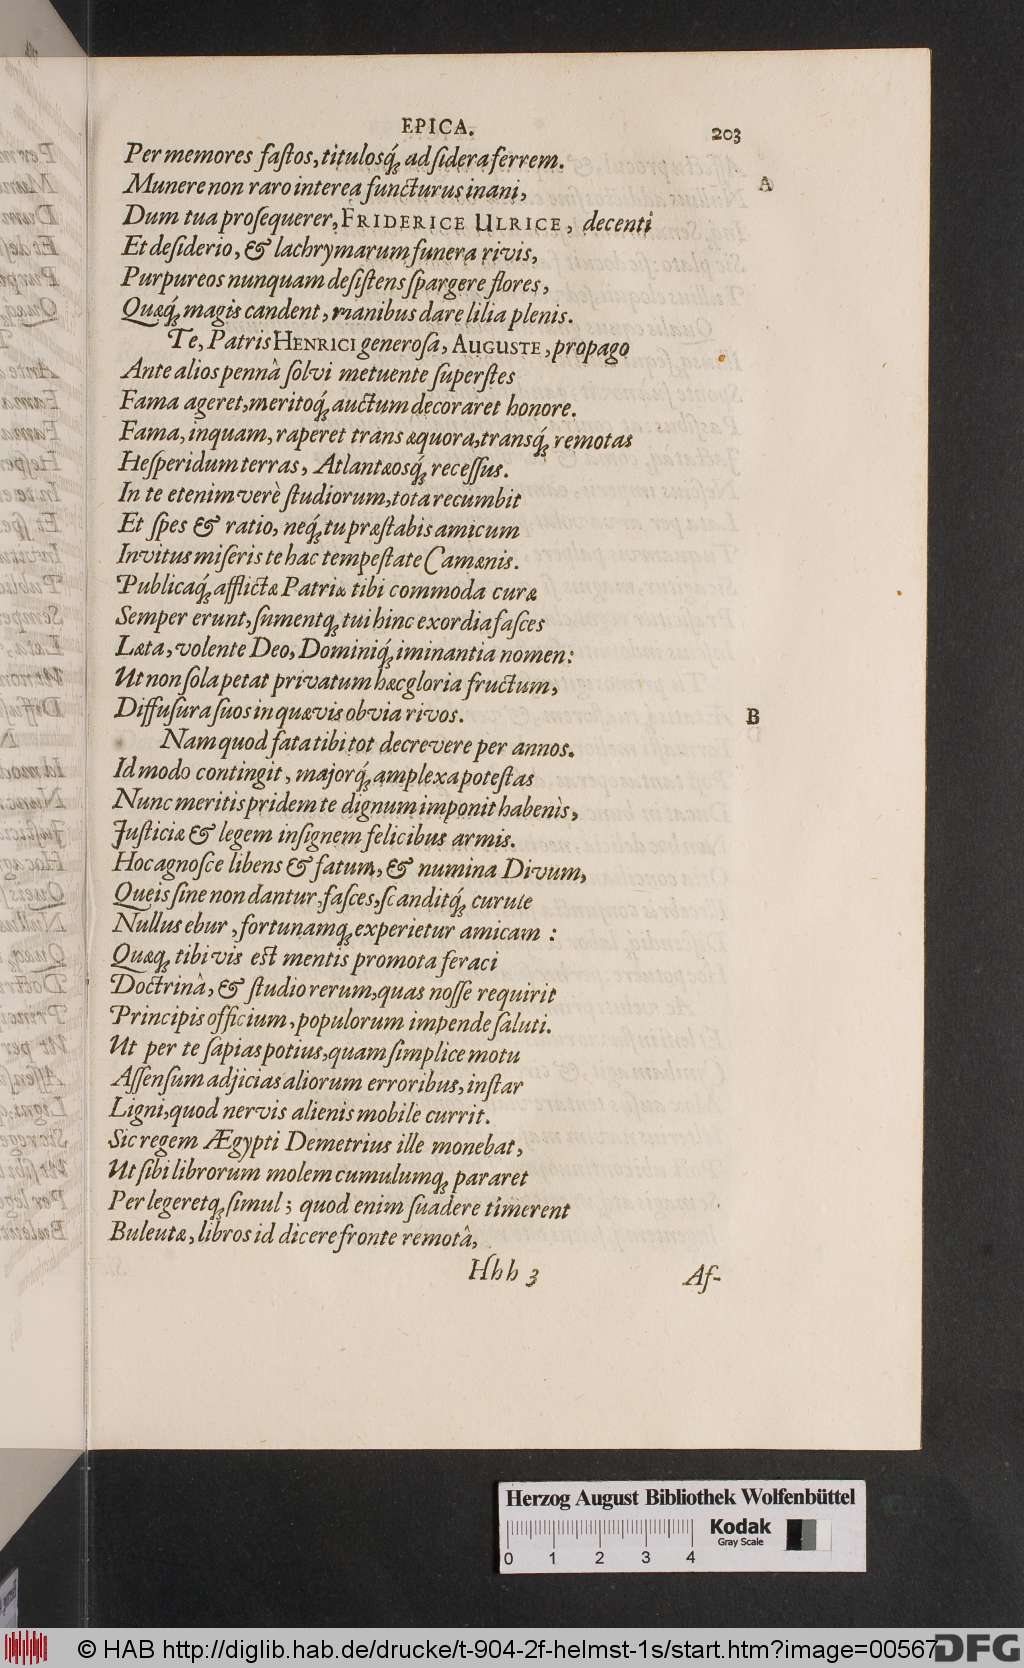 EPICA. 203
Per memores faſtos, titulosq́ꝫ ad ſidera ferrem.
A
Munere non raro interea functurus inani,
Dum tua proſequerer, FRIDERICE ULRICE, decenti
Et deſiderio, & lachrymarum funera rivis,
Purpureos nunquam deſiſtens ſpargere flores,
Quæq́ꝫ magis candent, manibus dare lilia plenis.
Te, Patris HENRICI generoſa, AUGUSTE, propago
Ante alios pennâ ſolvi metuente ſuperſtes
Fama ageret, meritoq́ꝫ auctum decoraret honore.
Fama, inquam, raperet trans æquora, transq́ꝫ remotas
Heſperidum terras, Atlantæosq́ꝫ receſſus.
In te etenim verè ſtudiorum, tota recumbit
Et ſpes & ratio, neq́ꝫ tu præſtabis amicum
Invitus miſeris te hac tempeſtate Camænis.
Publicaq́ꝫ afflictæ Patriæ tibi commoda curæ
Semper erunt, ſumentqꝫ tui hinc exordia faſces
Læta, volente Deo, Dominiq́ꝫ iminantia nomen:
Ut non ſola petat privatum hæc gloria fructum,
Diffuſura ſuos in quævis obvia rivos.
B
Nam quod fata tibi tot decrevere per annos.
Id modo contingit, majorq́ꝫ amplexa poteſtas
Nunc meritis pridem te dignum imponit habenis,
Juſticiæ & legem inſignem felicibus armis.
Hoc agnoſce libens & fatum, & numina Divum,
Queis ſine non dantur, faſces, ſcanditq́ꝫ curule
Nullus ebur, fortunamqꝫ experietur amicam :
Quæqꝫ tibi vis est mentis promota feraci
Doctrinâ, & ſtudio rerum, quas noſſe requirit
Principis officium, populorum impende ſaluti.
Ut per te ſapias potius, quam ſimplice motu
Aſſenſum adjicias aliorum erroribus, inſtar
Ligni, quod nervis alienis mobile currit.
Sic regem Ægypti Demetrius ille monebat,
Ut ſibi librorum molem cumulumqꝫ pararet
Per legeretqꝫ ſimul; quod enim ſuadere timerent
Buleutæ, libros id dicere fronte remotâ,
Hhh 3 Aſ-
Herzog August Bibliothek Wolfenbüttel
0 1 2 3 4
Kodak
Gray Scale
© HAB http://diglib.hab.de/drucke/t-904-2f-helmst-1s/start.htm?image=00567
DFG